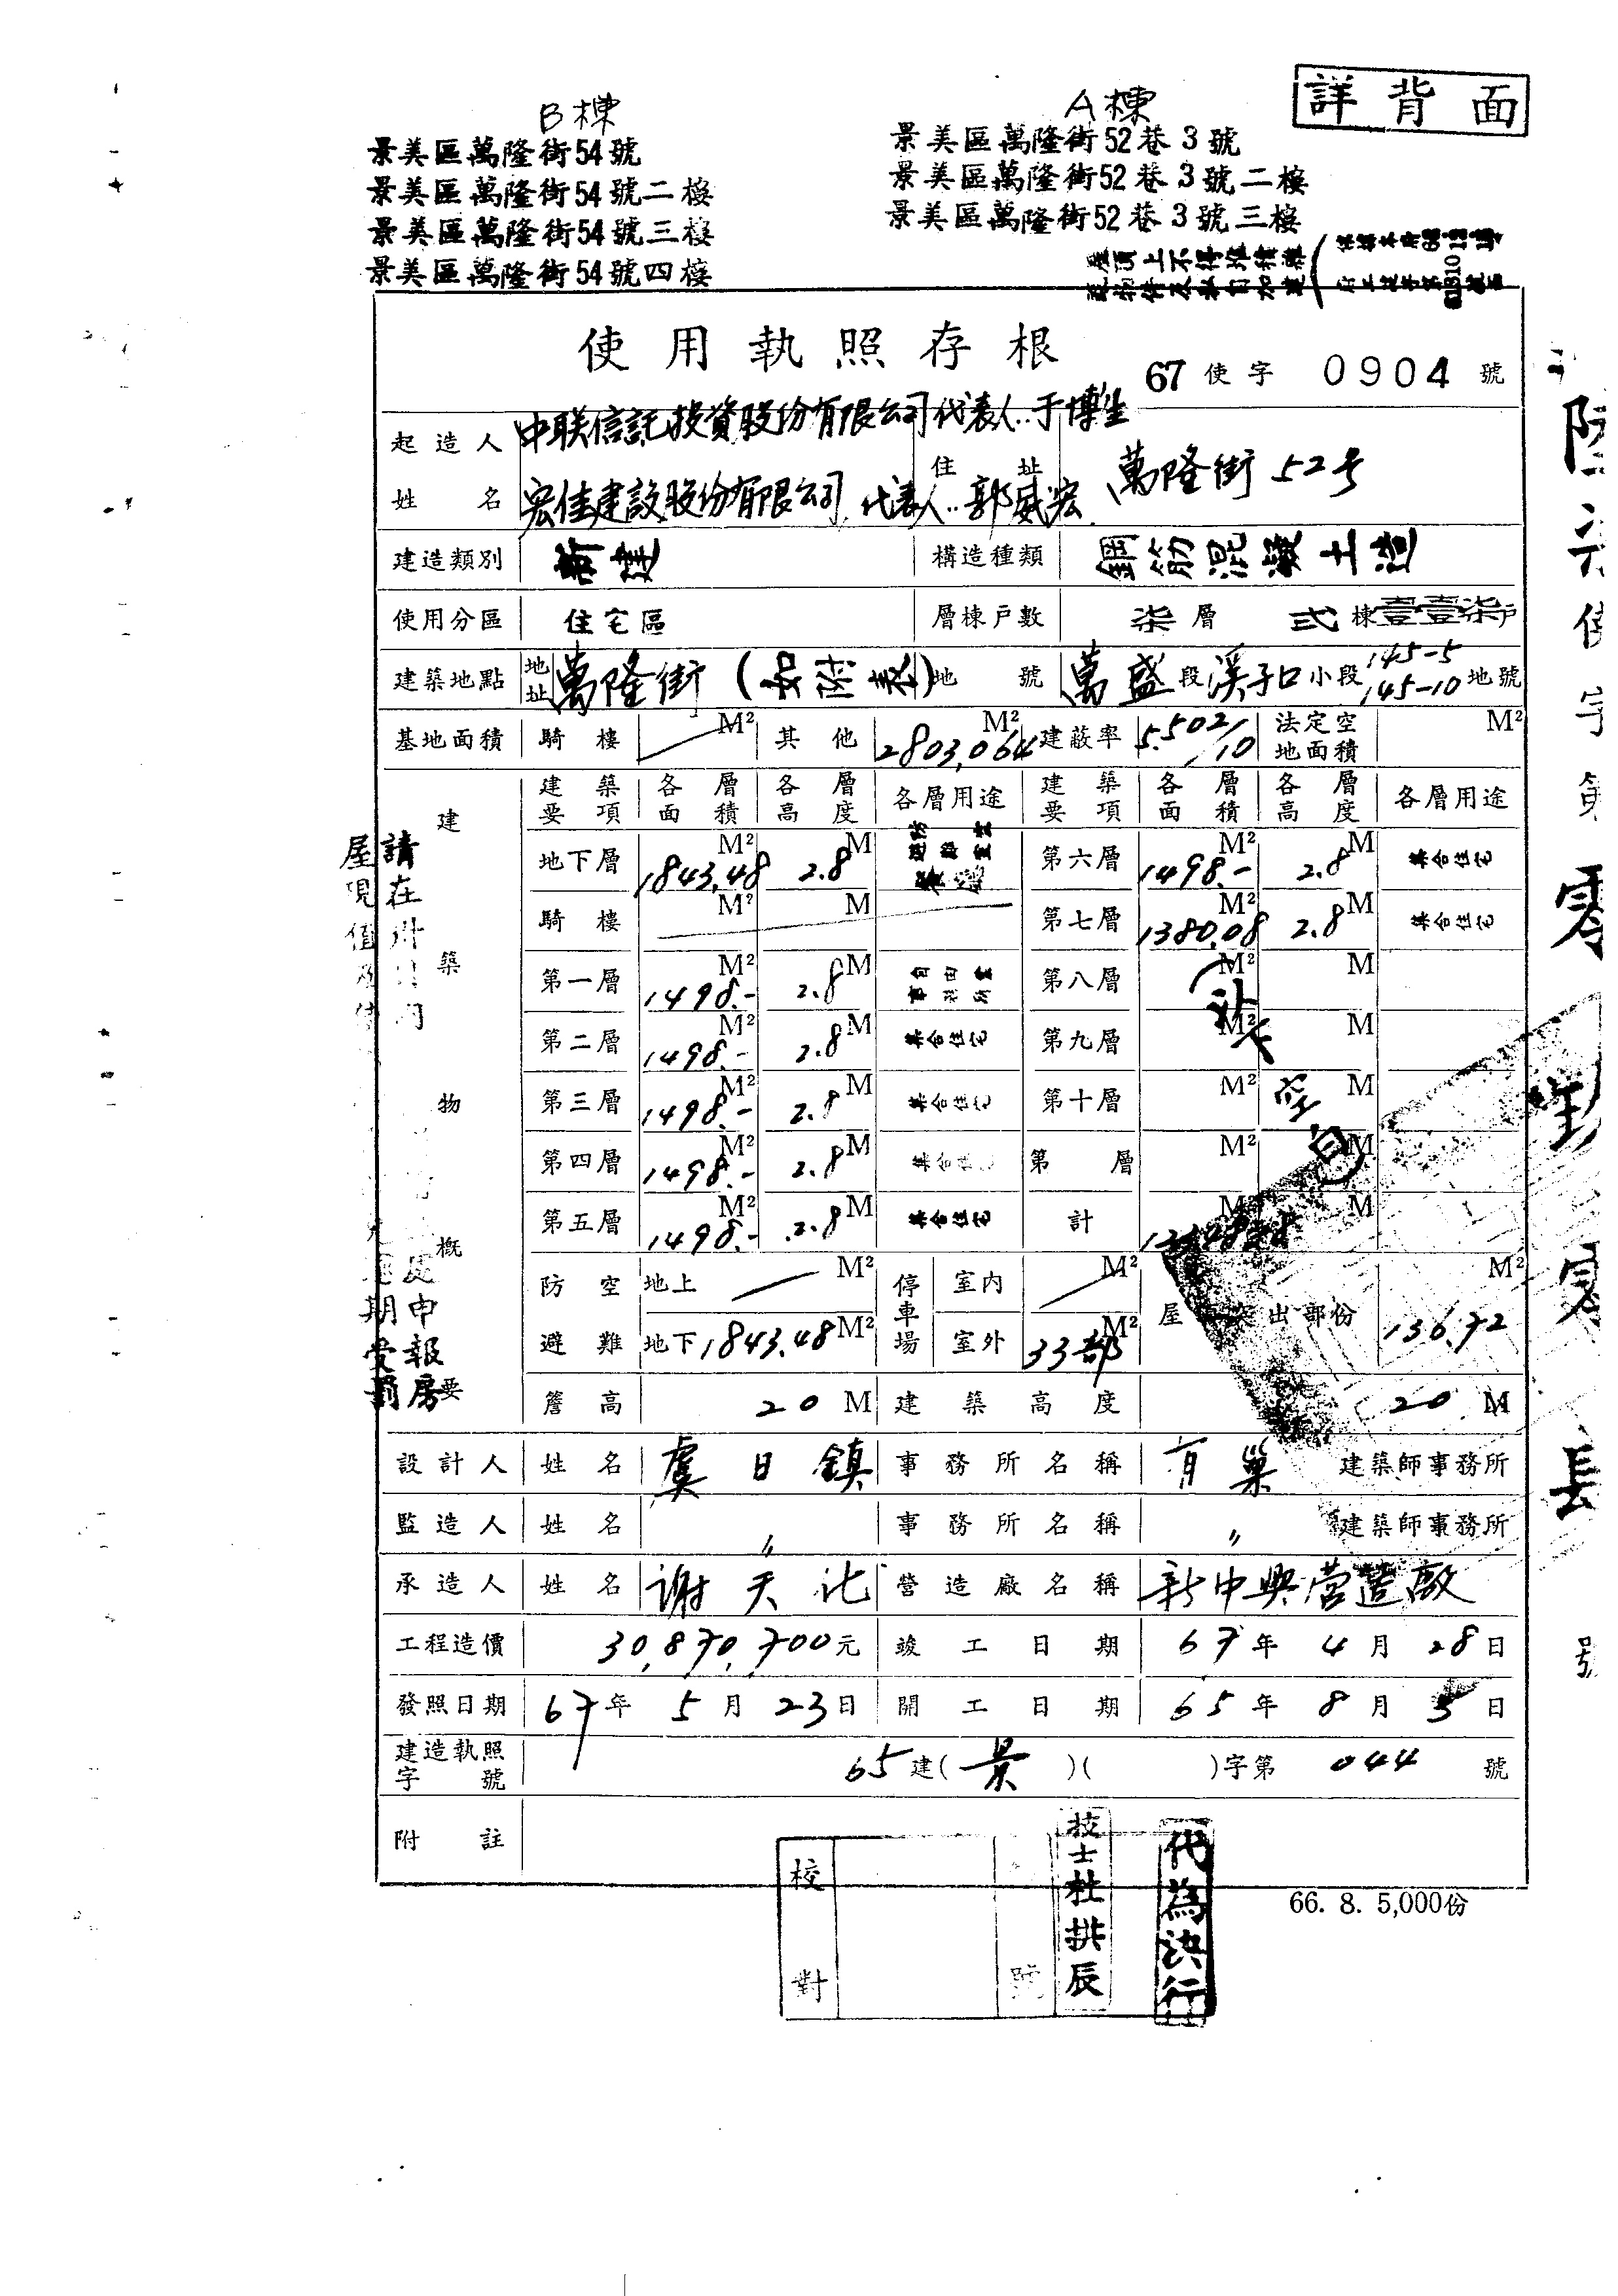 詳背面
B棟
景美區萬隆街54號
景美區萬隆街54號二樓
景美區萬隆街54號三樓
景美區萬隆街54號四樓
A棟
景美區萬隆街52巷3號
景美區萬隆街52巷3號二樓
景美區萬隆街52巷3號三樓
屋頂上不得堆積雜
使用執照存根
67使字 0904 號
起造人姓名 中联信託投資股份有限公司代表人..于博生
宏佳建設股份有限公司 代表人..郭威宏
住址 萬隆街52号
建造類別 新建 構造種類 鋼筋混凝土造
使用分區 住宅區 層棟戶數 柒層 弍棟壹壹柒戶
建築地點 地址 萬隆街(如附表) 地號 萬盛段溪子口小段145-5 145-10地號
基地面積 騎樓 M² 其他 2803,064 M² 建蔽率 5.502/10 法定空地面積 M²
建築物概要
建築要項 各層面積 各層高度 各層用途 建築要項 各層面積 各層高度 各層用途
地下層 1843,48 M² 2.8 M 第六層 1498.- M² 2.8 M 集合住宅
騎樓 M² M 第七層 1380,08 M² 2.8 M 集合住宅
第一層 1498.- M² 2.8 M 第八層 M² M
第二層 1498.- M² 2.8 M 集合住宅 第九層 M² M
第三層 1498.- M² 2.8 M 集合住宅 第十層 M² M
第四層 1498.- M² 2.8 M 集合住宅 第 層 M² M
第五層 1498.- M² 2.8 M 集合住宅 計 M² M
(以下空白)
防空避難 地上 M² 停車場 室內 M²
地下 1843.48 M² 室外 33部 M² 屋 突出部份 136.72 M²
簷高 20 M 建築高度 20 M
設計人 姓名 虞日鎮 事務所名稱 有巢 建築師事務所
監造人 姓名 〃 事務所名稱 〃 建築師事務所
承造人 姓名 谢天化 營造廠名稱 新中興营造廠
工程造價 30,870,700元 竣工日期 67年4月28日
發照日期 67年5月23日 開工日期 65年8月5日
建造執照字號 65建(景)( )字第 044 號
附註
校對
技士杜拱辰
代為決行
66. 8. 5,000份